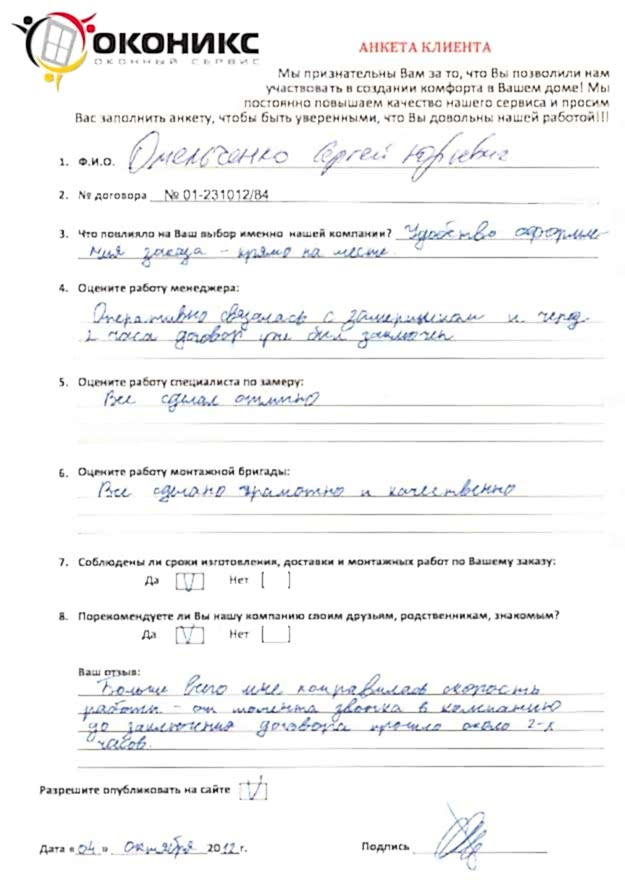 ОКОНИКС
ОКОННЫЙ СЕРВИС
АНКЕТА КЛИЕНТА
Мы признательны Вам за то, что Вы позволили нам
участвовать в создании комфорта в Вашем доме! Мы
постоянно повышаем качество нашего сервиса и просим
Вас заполнить анкету, чтобы быть уверенными, что Вы довольны нашей работой!!!
1. Ф.И.О. Омельченко Сергей Юрьевич
2. № договора № 01-231012/84
3. Что повлияло на Ваш выбор именно нашей компании? Удобство оформле-
ния заказа – прямо на месте.
4. Оцените работу менеджера:
Оперативно связалась с замерщиком и через
2 часа договор уже был заключен
5. Оцените работу специалиста по замеру:
Все сделал отлично
6. Оцените работу монтажной бригады:
Все сделано грамотно и качественно
7. Соблюдены ли сроки изготовления, доставки и монтажных работ по Вашему заказу:
Да [V] Нет [ ]
8. Порекомендуете ли Вы нашу компанию своим друзьям, родственникам, знакомым?
Да [V] Нет [ ]
Ваш отзыв:
Больше всего мне понравилась скорость
работы – от момента звонка в компанию
до заключения договора прошло около 2-х
часов.
Разрешите опубликовать на сайте [V]
Дата «04» октября 2012 г. Подпись